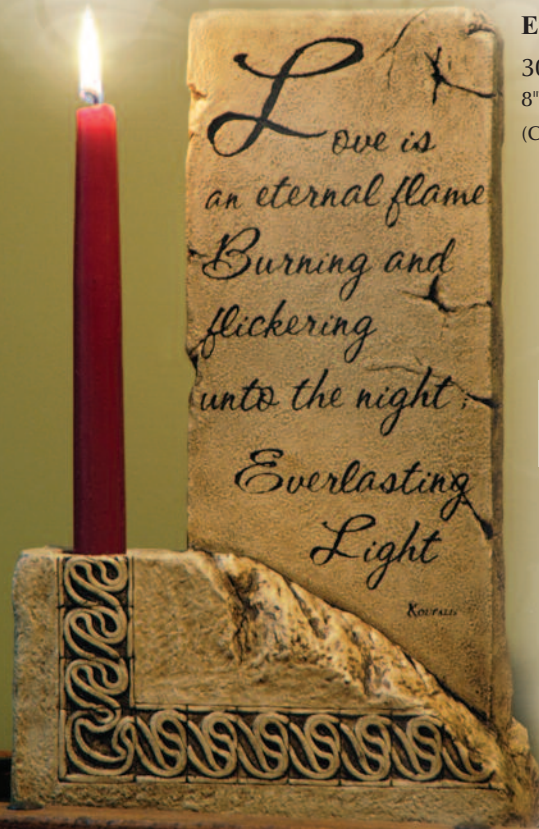 Love is
an eternal flame
Burning and
flickering
unto the night;
Everlasting
Light
E
30
8"
(C